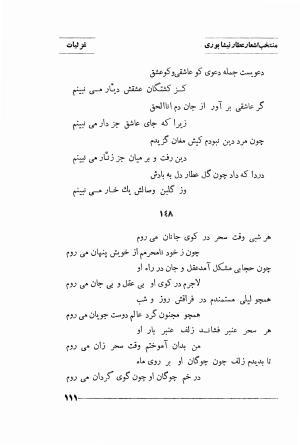 منتخب اشعار عطار نیشابوری
غزلیات
دعویست جمله دعوی کو عاشقی و کو عشق
کز کشتگان عشقش دیّار می نبینم
گر عاشقی بر آور از جان دم اناالحق
زیرا که جای عاشق جز دار می نبینم
چون مرد دین نبودم کیش مغان گزیدم
دین رفت و بر میان جز زنّار می نبینم
دردا که داد چون گل عطار دل به بادش
وز گلبن وصالش یك خار می نبینم
۱۴۸
هر شبی وقت سحر در کوی جانان می روم
چون ز خود نامحرمم از خویش پنهان می روم
چون حجابی مشکل آمد عقل و جان در راه او
لاجرم در کوی او بی عقل و بی جان می روم
همچو لیلی مستمندم در فراقش روز و شب
همچو مجنون گرد عالم دوست جویان می روم
هر سحر عنبر فشاند زلف عنبر بار او
من بدان آموختم وقت سحر زان می روم
تا بدیدم زلف چون چوگان او بر روی ماه
در خم چوگان او چون گوی گردان می روم
۱۱۱